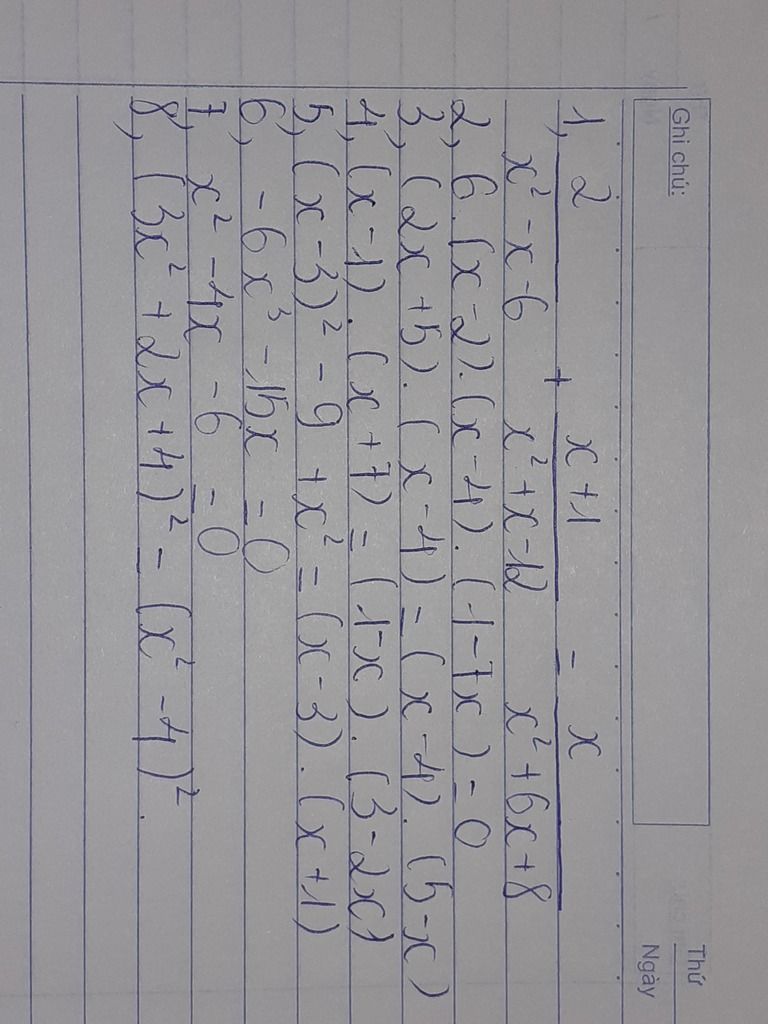 Thứ
Ngày
Ghi chú:
1, 2/(x² - x - 6) + (x + 1)/(x² + x - 12) = x/(x² + 6x + 8)
2, 6.(x - 2).(x - 4).(-1 - 7x) = 0
3, (2x + 5).(x - 4) = (x - 4).(5 - x)
4, (x - 1).(x + 7) = (1 - x).(3 - 2x)
5, (x - 3)² - 9 + x² = (x - 3).(x + 1)
6, - 6x³ - 15x = 0
7, x² - 4x - 6 = 0
8, (3x² + 2x + 4)² = (x² - 4)².